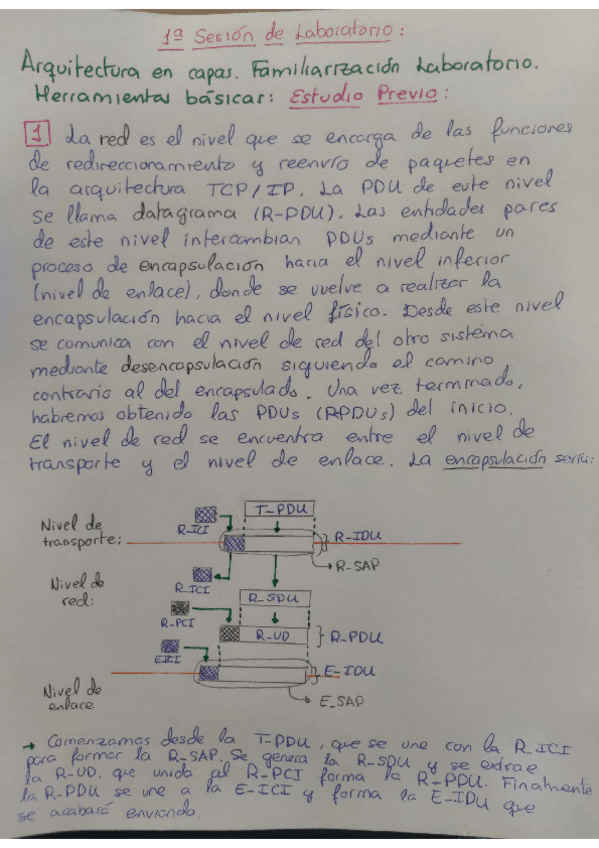 1ª Sesión de Laboratorio:
Arquitectura en capas. Familiarización Laboratorio.
Herramientas básicas: Estudio Previo:
1 La red es el nivel que se encarga de las funciones
de redireccionamiento y reenvío de paquetes en
la arquitectura TCP/IP. La PDU de este nivel
se llama datagrama (R-PDU). Las entidades pares
de este nivel intercambian PDUs mediante un
proceso de encapsulación hacia el nivel inferior
(nivel de enlace), donde se vuelve a realizar la
encapsulación hacia el nivel físico. Desde este nivel
se comunica con el nivel de red del otro sistema
mediante desencapsulación siguiendo el camino
contrario al del encapsulado. Una vez terminado,
habremos obtenido las PDUs (RPDUs) del inicio.
El nivel de red se encuentra entre el nivel de
transporte y el nivel de enlace. La encapsulación sería:
T-PDU
R-ICI
Nivel de
transporte:
R-IDU
R-SAP
R-ICI
Nivel de
red:
R-SDU
R-PCI
R-UD
R-PDU
E-ICI
E-IDU
Nivel de
enlace
E_SAP
→ Comenzamos desde la T-PDU, que se une con la R-ICI
para formar la R-SAP. Se genera la R-SDU y se extrae
la R-UD, que unida al R-PCI forma la R-PDU. Finalmente
la R-PDU se une a la E-ICI y forma la E-IDU que
se acabará enviando.